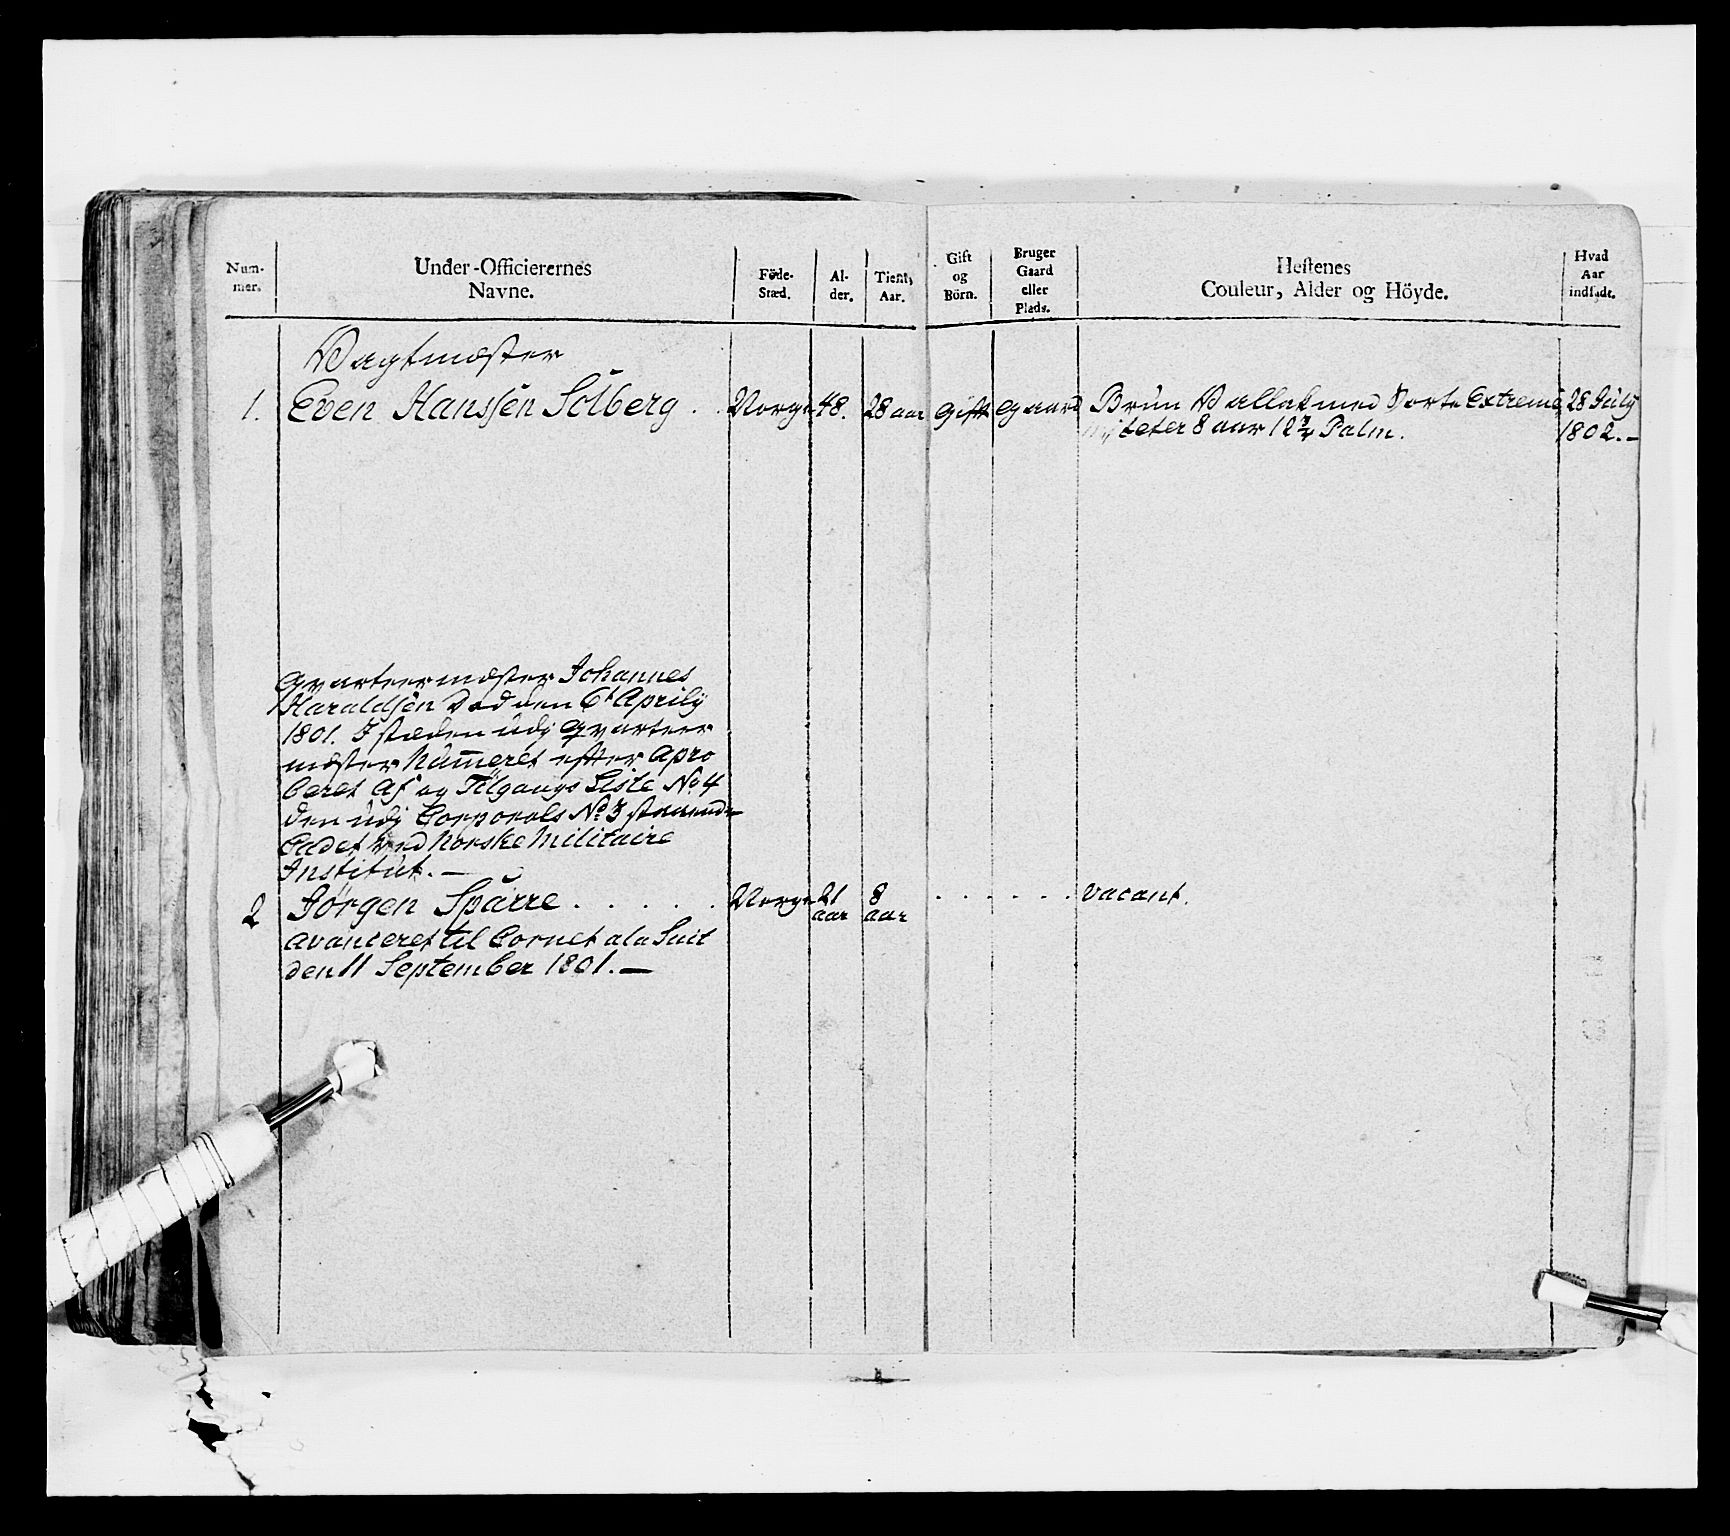 Num-
mer.
Under-Officierernes
Navne.
Föde-
Stæd.
Al-
der.
Tient,
Aar.
Gift
og
Börn.
Bruger
Gaard
eller
Plads.
Hestenes
Couleur, Alder og Höyde.
Hvad
Aar
indsadt.
Vagtmæster
1. Even Hanssen Solberg . . Norge 48. 28 aar Gift Gaard Brun Vallak med Sorte Extremi 28 July
teter 8 aar 12 3/4 Palm. 1802.-
Qvarteermæster Johannes
Haraldsen Död den 6t Aprily
1801. I stæden udj Qvarteer
mæster Nummeret efter Apro
beret Af og Tilgangs Liste No 4
den udj Corporals No 3 staaende
Cadet ved Norske Militaire
Institut. —
2 Jörgen Sparre . . . . . Norge 21 aar 8 aar . . . . . . vacant.
avanceret til Cornet ala Suit
den 11 September 1801. —